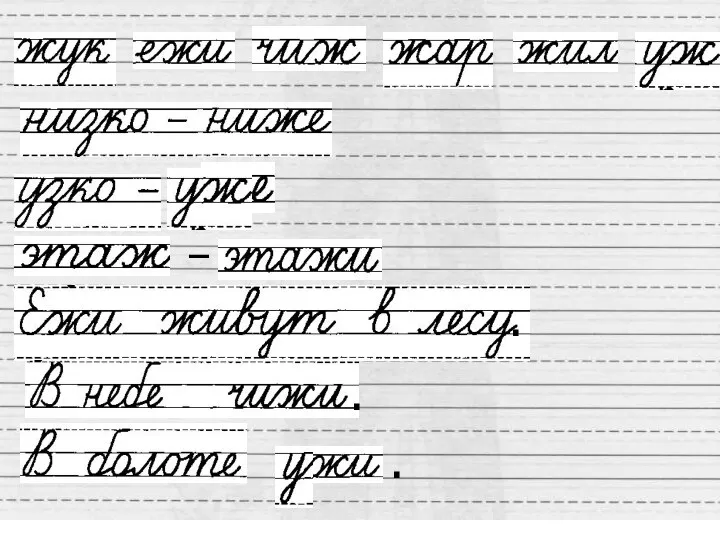 жук ежи чиж жар жил уж
низко – ниже
узко – уже
этаж – этажи
Ежи живут в лесу.
В небе чижи.
В болоте ужи.